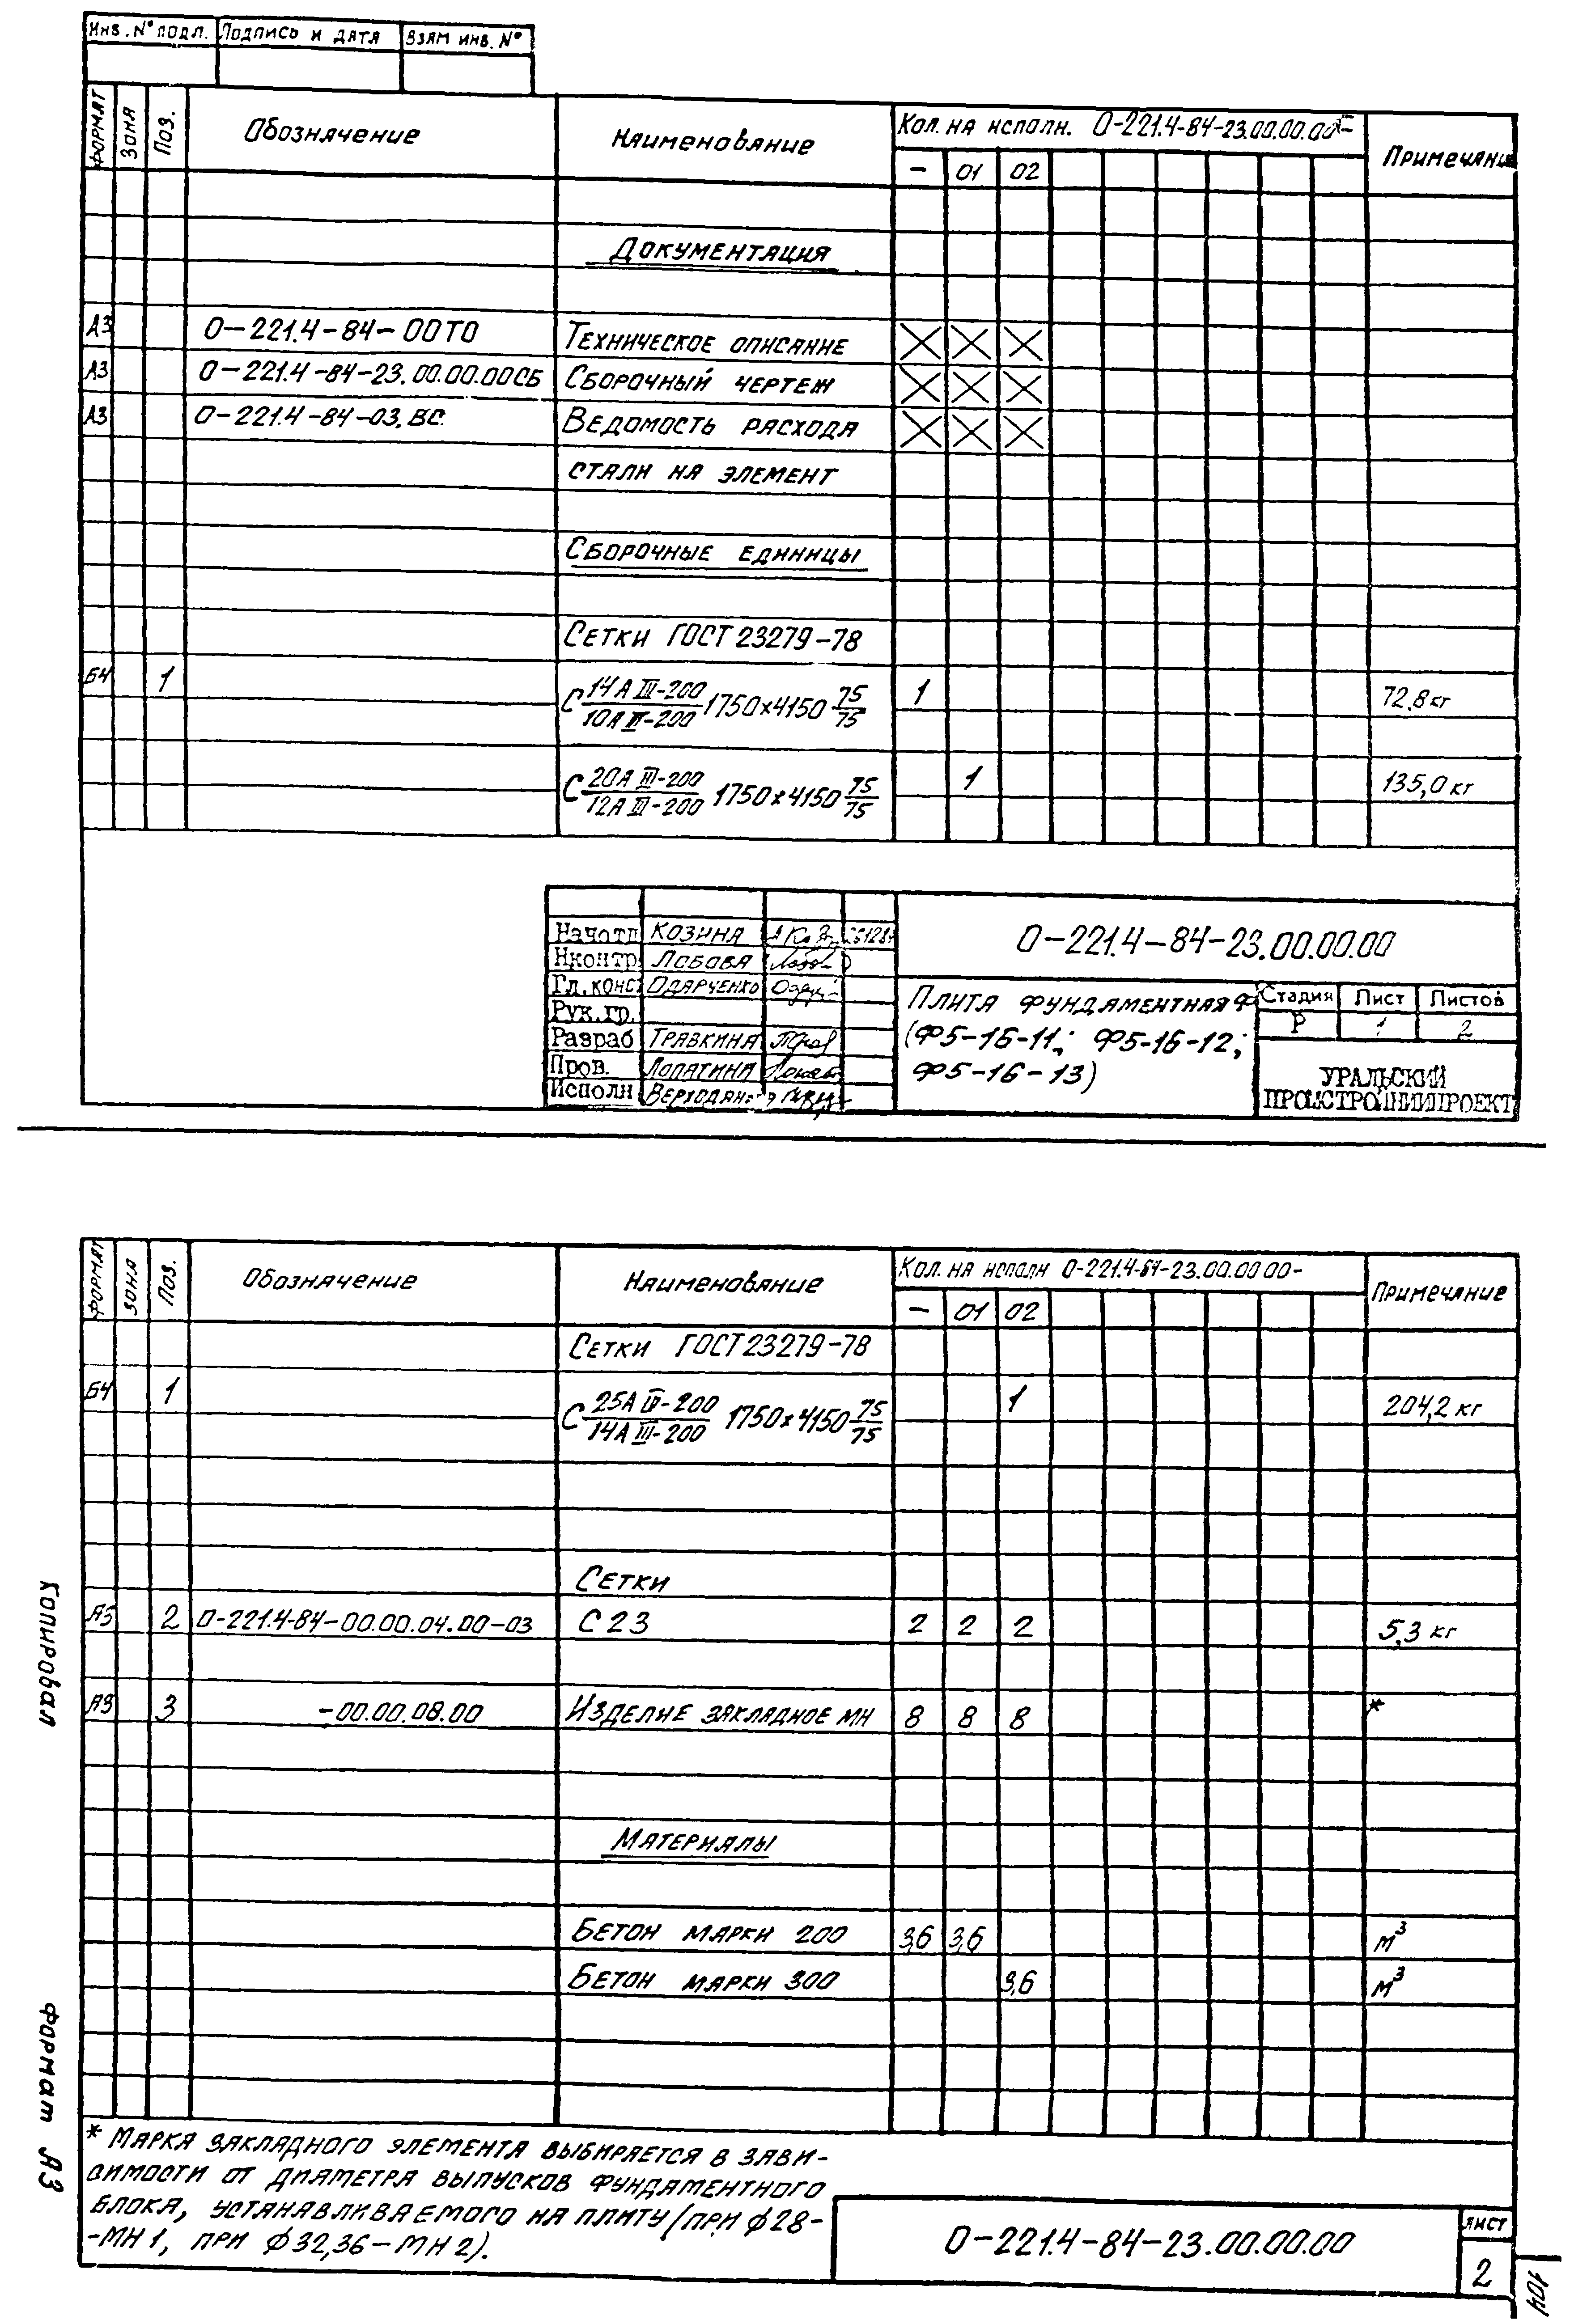 Инв. № подл. Подпись и дата Взам инв. №
Формат Зона Поз. Обозначение Наименование Кол. на исполн. О-221.4-84-23.00.00.00- Примечани
- 01 02
Документация
А3 О-221.4-84-00ТО Техническое описание
А3 О-221.4-84-23.00.00.00СБ Сборочный чертеж
А3 О-221.4-84-03.ВС. Ведомость расхода
стали на элемент
Сборочные единицы
Сетки ГОСТ 23279-78
Б4 1 С 14А III-200 / 10А II-200 1750х4150 75/75 1 72.8 кг
С 20А III-200 / 12А III-200 1750х4150 75/75 1 135,0 кг
Начотд Козина
Нконтр Лобова
Гл. конс Одарченко
Рук. гр.
Разраб Травкина
Пров. Лопатина
Исполн
О-221.4-84-23.00.00.00
Плита фундаментная Ф
(Ф5-16-11; Ф5-16-12;
Ф5-16-13)
Стадия Лист Листов
Р 1 2
УРАЛЬСКИЙ
ПРОМСТРОЙНИИПРОЕКТ
Формат Зона Поз. Обозначение Наименование Кол. на исполн О-221.4-84-23.00.00 00- Примечание
- 01 02
Сетки ГОСТ 23279-78
Б4 1 С 25А III-200 / 14А III-200 1750х4150 75/75 1 204,2 кг
Сетки
А3 2 О-221.4-84-00.00.04.00-03 С23 2 2 2 5,3 кг
А3 3 -00.00.08.00 Изделие закладное МН 8 8 8 *
Материалы
Бетон марки 200 3,6 3,6 м³
Бетон марки 300 3,6 м³
* Марка закладного элемента выбирается в зави-
симости от диаметра выпусков фундаментного
блока, устанавливаемого на плиту (при ф28-
-МН 1, при ф32,36-МН 2).
О-221.4-84-23.00.00.00
Лист
2
Копировал
Формат А3
104